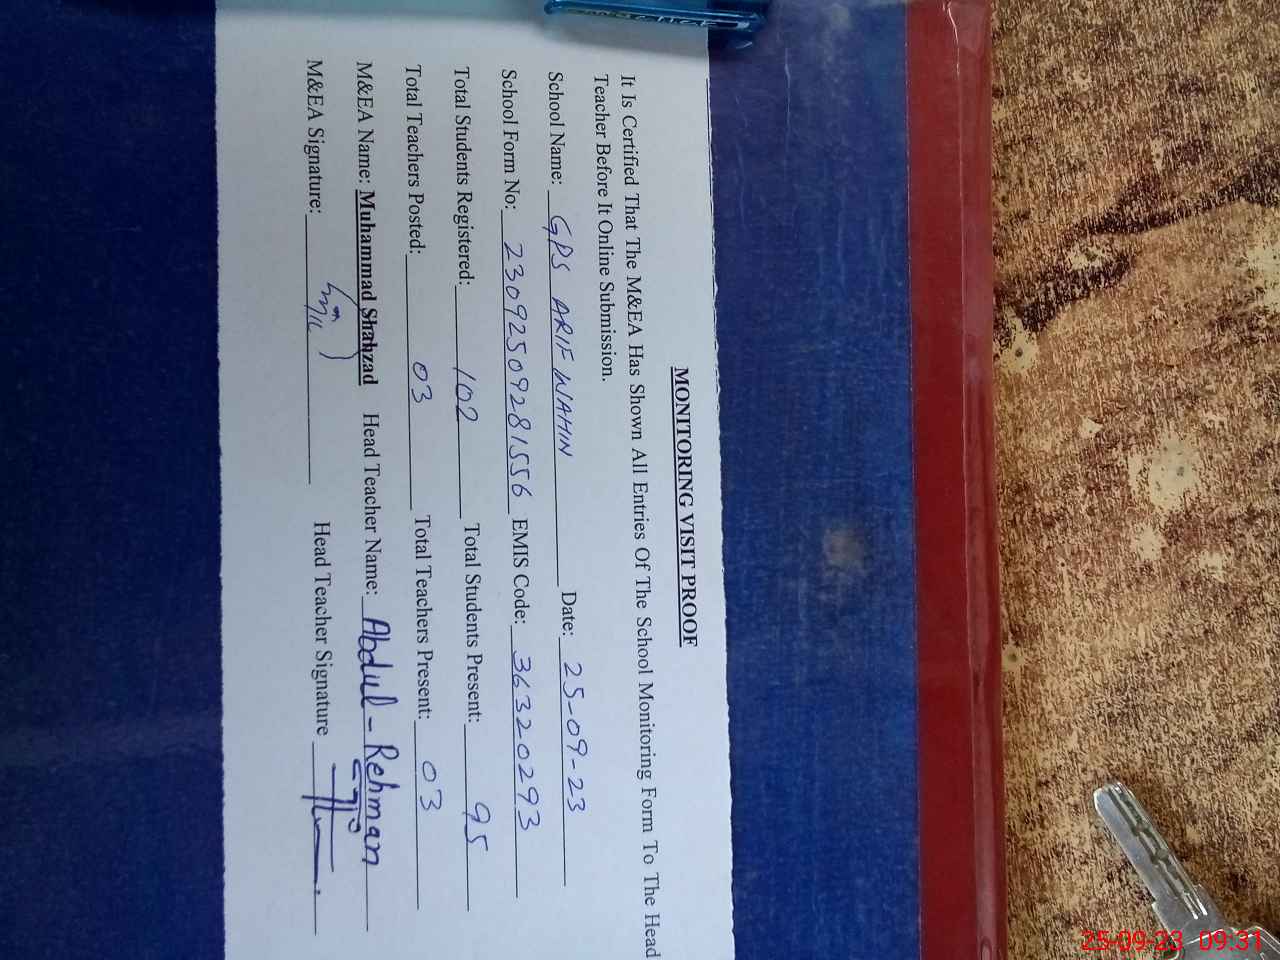 MONITORING VISIT PROOF
It Is Certified That The M&EA Has Shown All Entries Of The School Monitoring Form To The Head
Teacher Before It Online Submission.
School Name: GPS ARIF WAHIN Date: 25-09-23
School Form No: 23092509281556 EMIS Code: 36320293
Total Students Registered: 102 Total Students Present: 95
Total Teachers Posted: 03 Total Teachers Present: 03
M&EA Name: Muhammad Shahzad Head Teacher Name: Abdul-Rehman
M&EA Signature: Head Teacher Signature
25-09-23 09:31